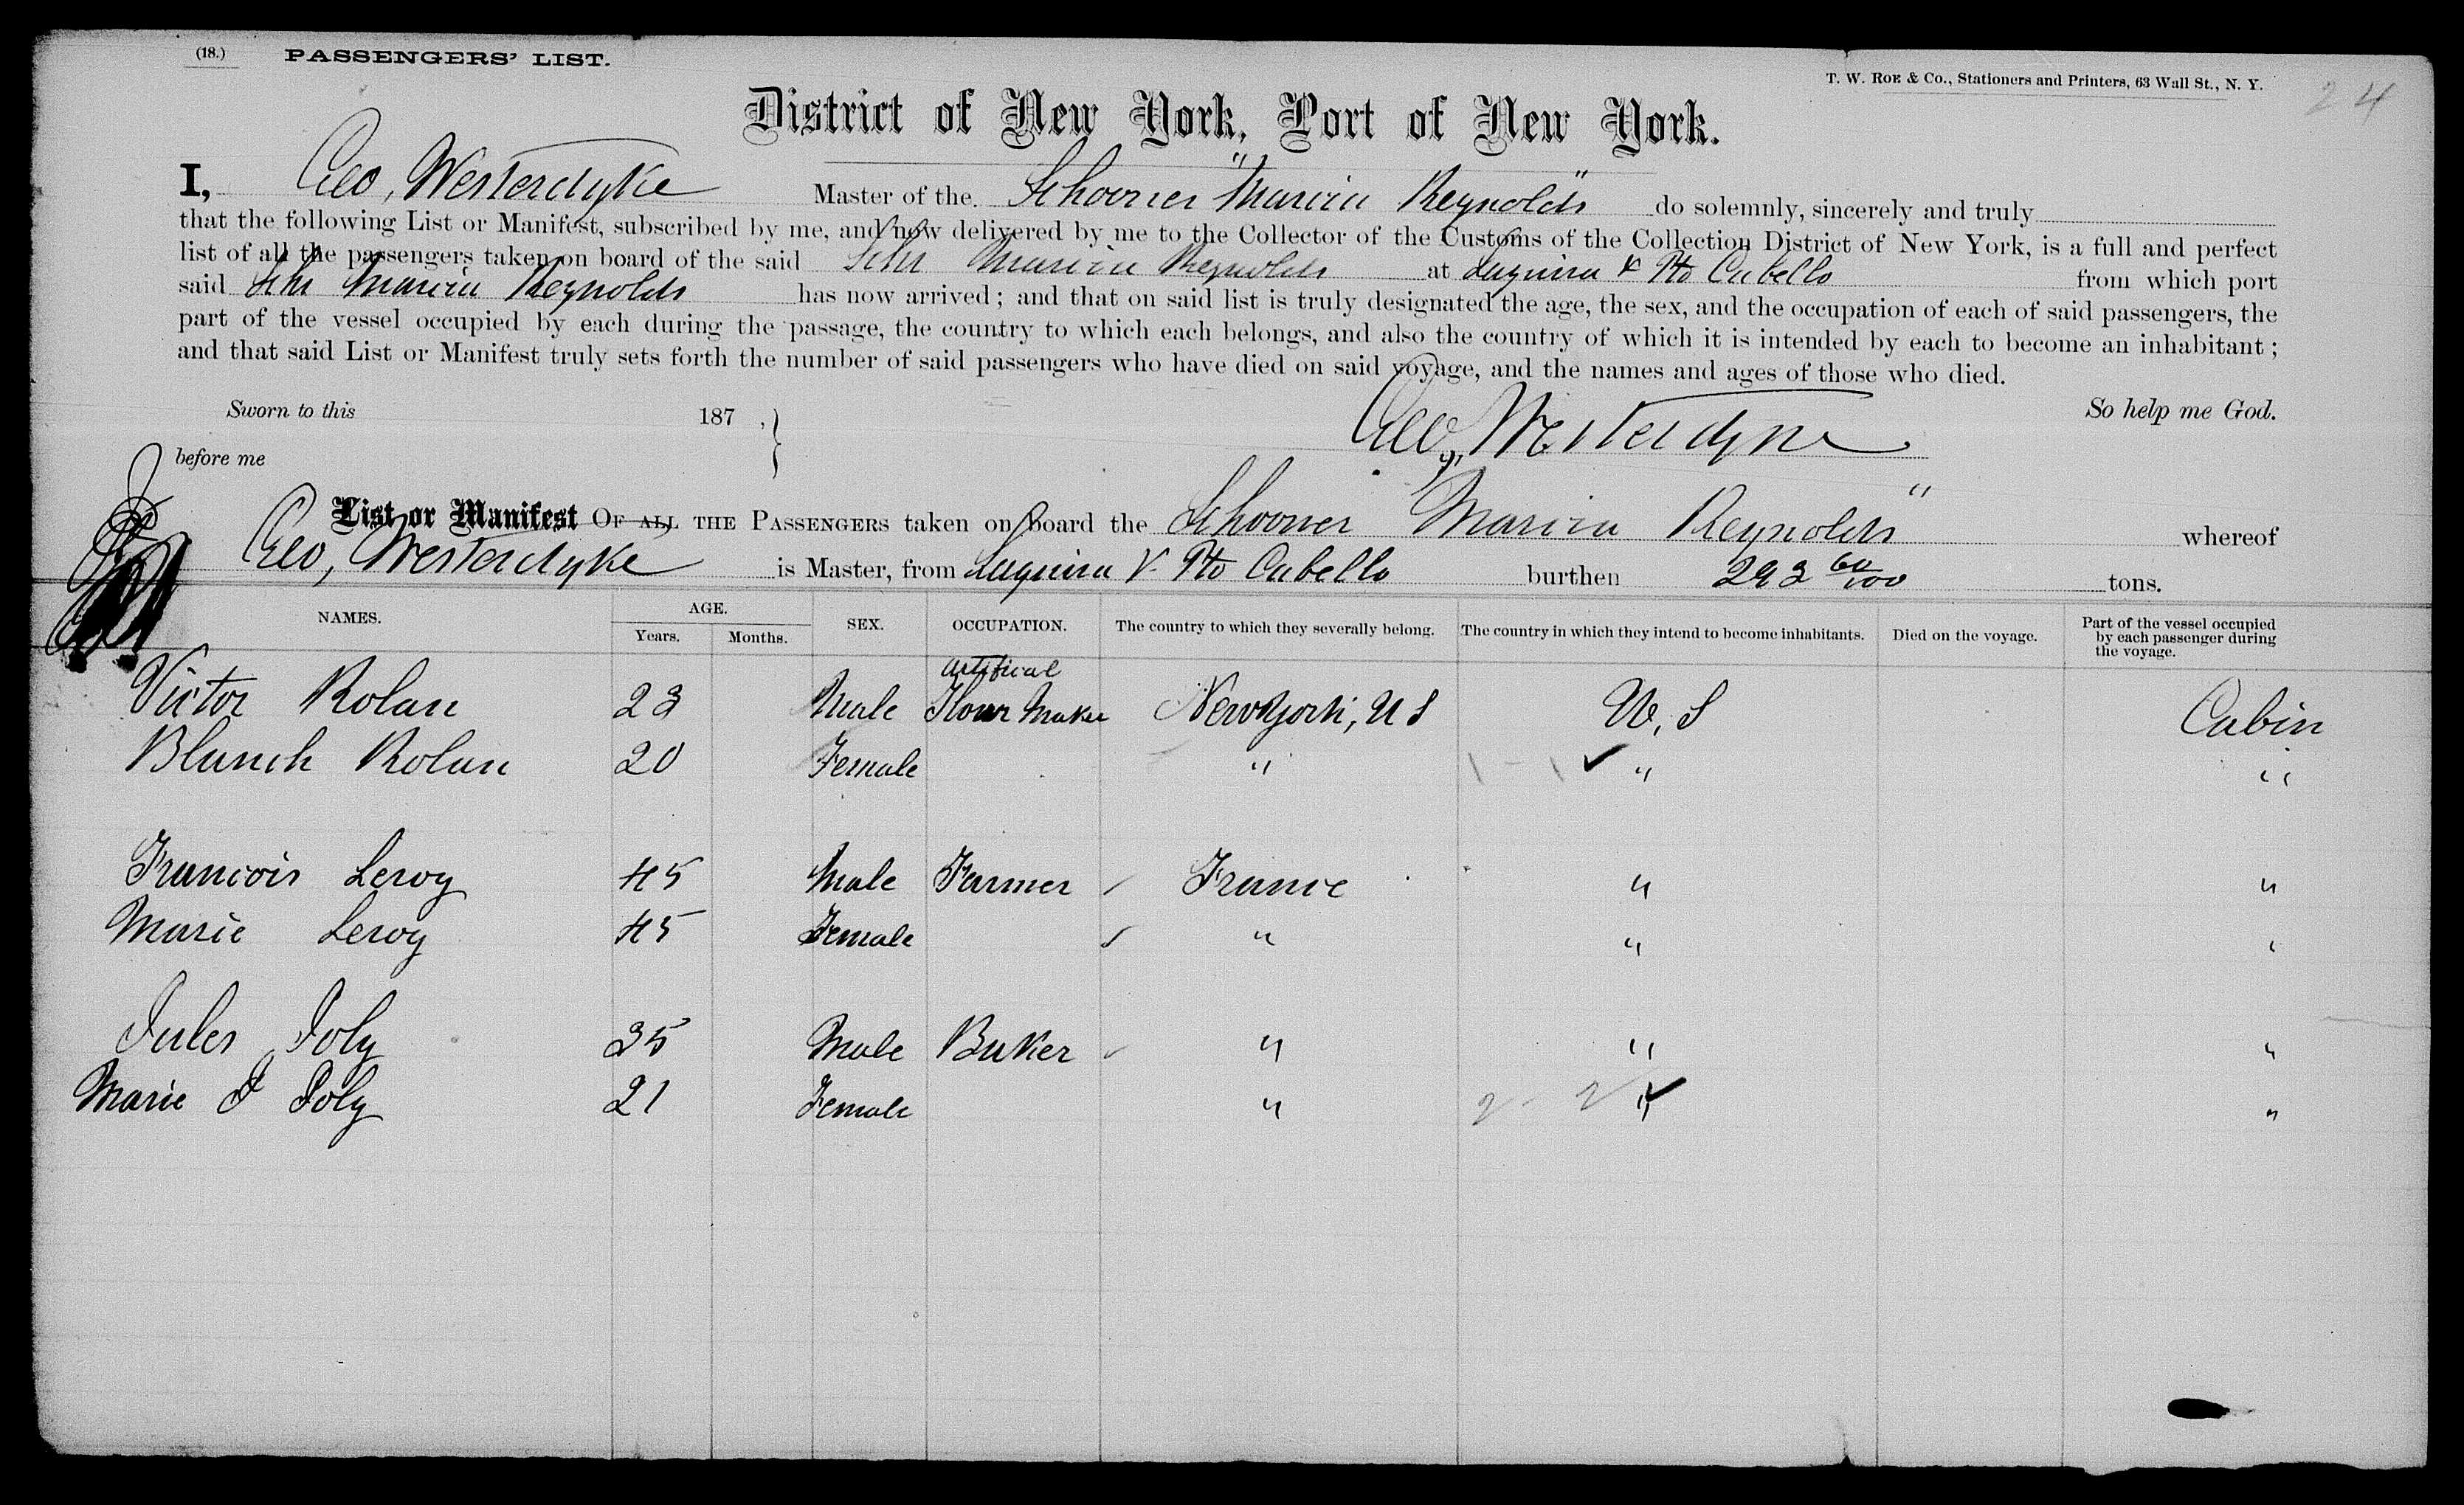 (18.) PASSENGERS' LIST.
T. W. ROE & Co., Stationers and Printers, 63 Wall St., N. Y. 24
District of New York, Port of New York.
I, Geo, Westerdyke Master of the Schooner "Marcia Reynolds" do solemnly, sincerely and truly
that the following List or Manifest, subscribed by me, and now delivered by me to the Collector of the Customs of the Collection District of New York, is a full and perfect
list of all the passengers taken on board of the said Schr Marcia Reynolds at Laguira & Pto Cabello from which port
said Schr Marcia Reynolds has now arrived; and that on said list is truly designated the age, the sex, and the occupation of each of said passengers, the
part of the vessel occupied by each during the passage, the country to which each belongs, and also the country of which it is intended by each to become an inhabitant;
and that said List or Manifest truly sets forth the number of said passengers who have died on said voyage, and the names and ages of those who died.
Sworn to this 187 , So help me God.
Geo, Westerdyke
before me
List or Manifest OF ALL THE PASSENGERS taken on board the Schooner "Marcia Reynolds" whereof
Geo, Westerdyke is Master, from Laguira & Pto Cabello burthen 293 60/100 tons.
NAMES. AGE. Years. Months. SEX. OCCUPATION. The country to which they severally belong. The country in which they intend to become inhabitants. Died on the voyage. Part of the vessel occupied by each passenger during the voyage.
Victor Rolan 23 Male Artifical Flour Maker New York, U S U. S Cabin
Blanch Rolan 20 Female " " "
Francois Leroy 45 Male Farmer France " "
Marie Leroy 45 Female " " "
Jules Joly 35 Male Baker " " "
Marie J Joly 21 Female " " "